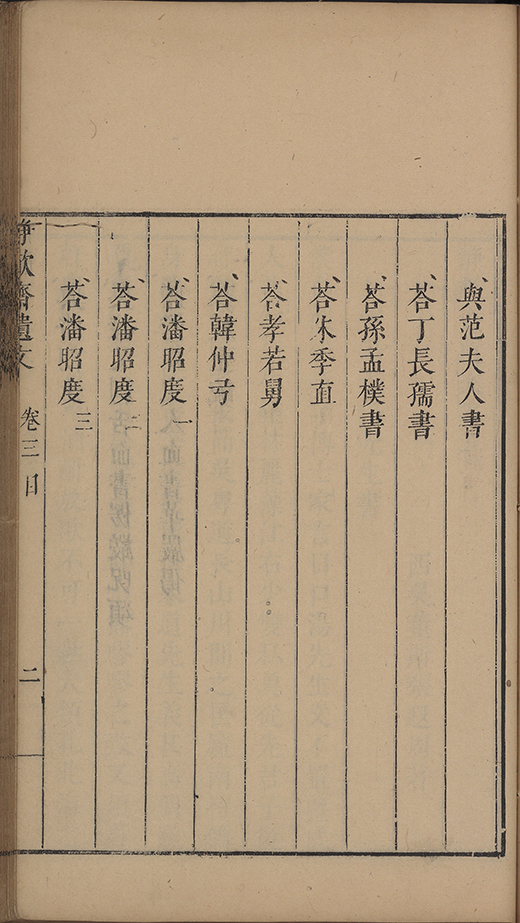 與范夫人書
荅丁長孺書
荅孫孟樸書
荅朱季直
荅孝若舅
荅韓仲弓
荅潘昭度一
荅潘昭度二
荅潘昭度三
歗齋遺文 卷三目 二